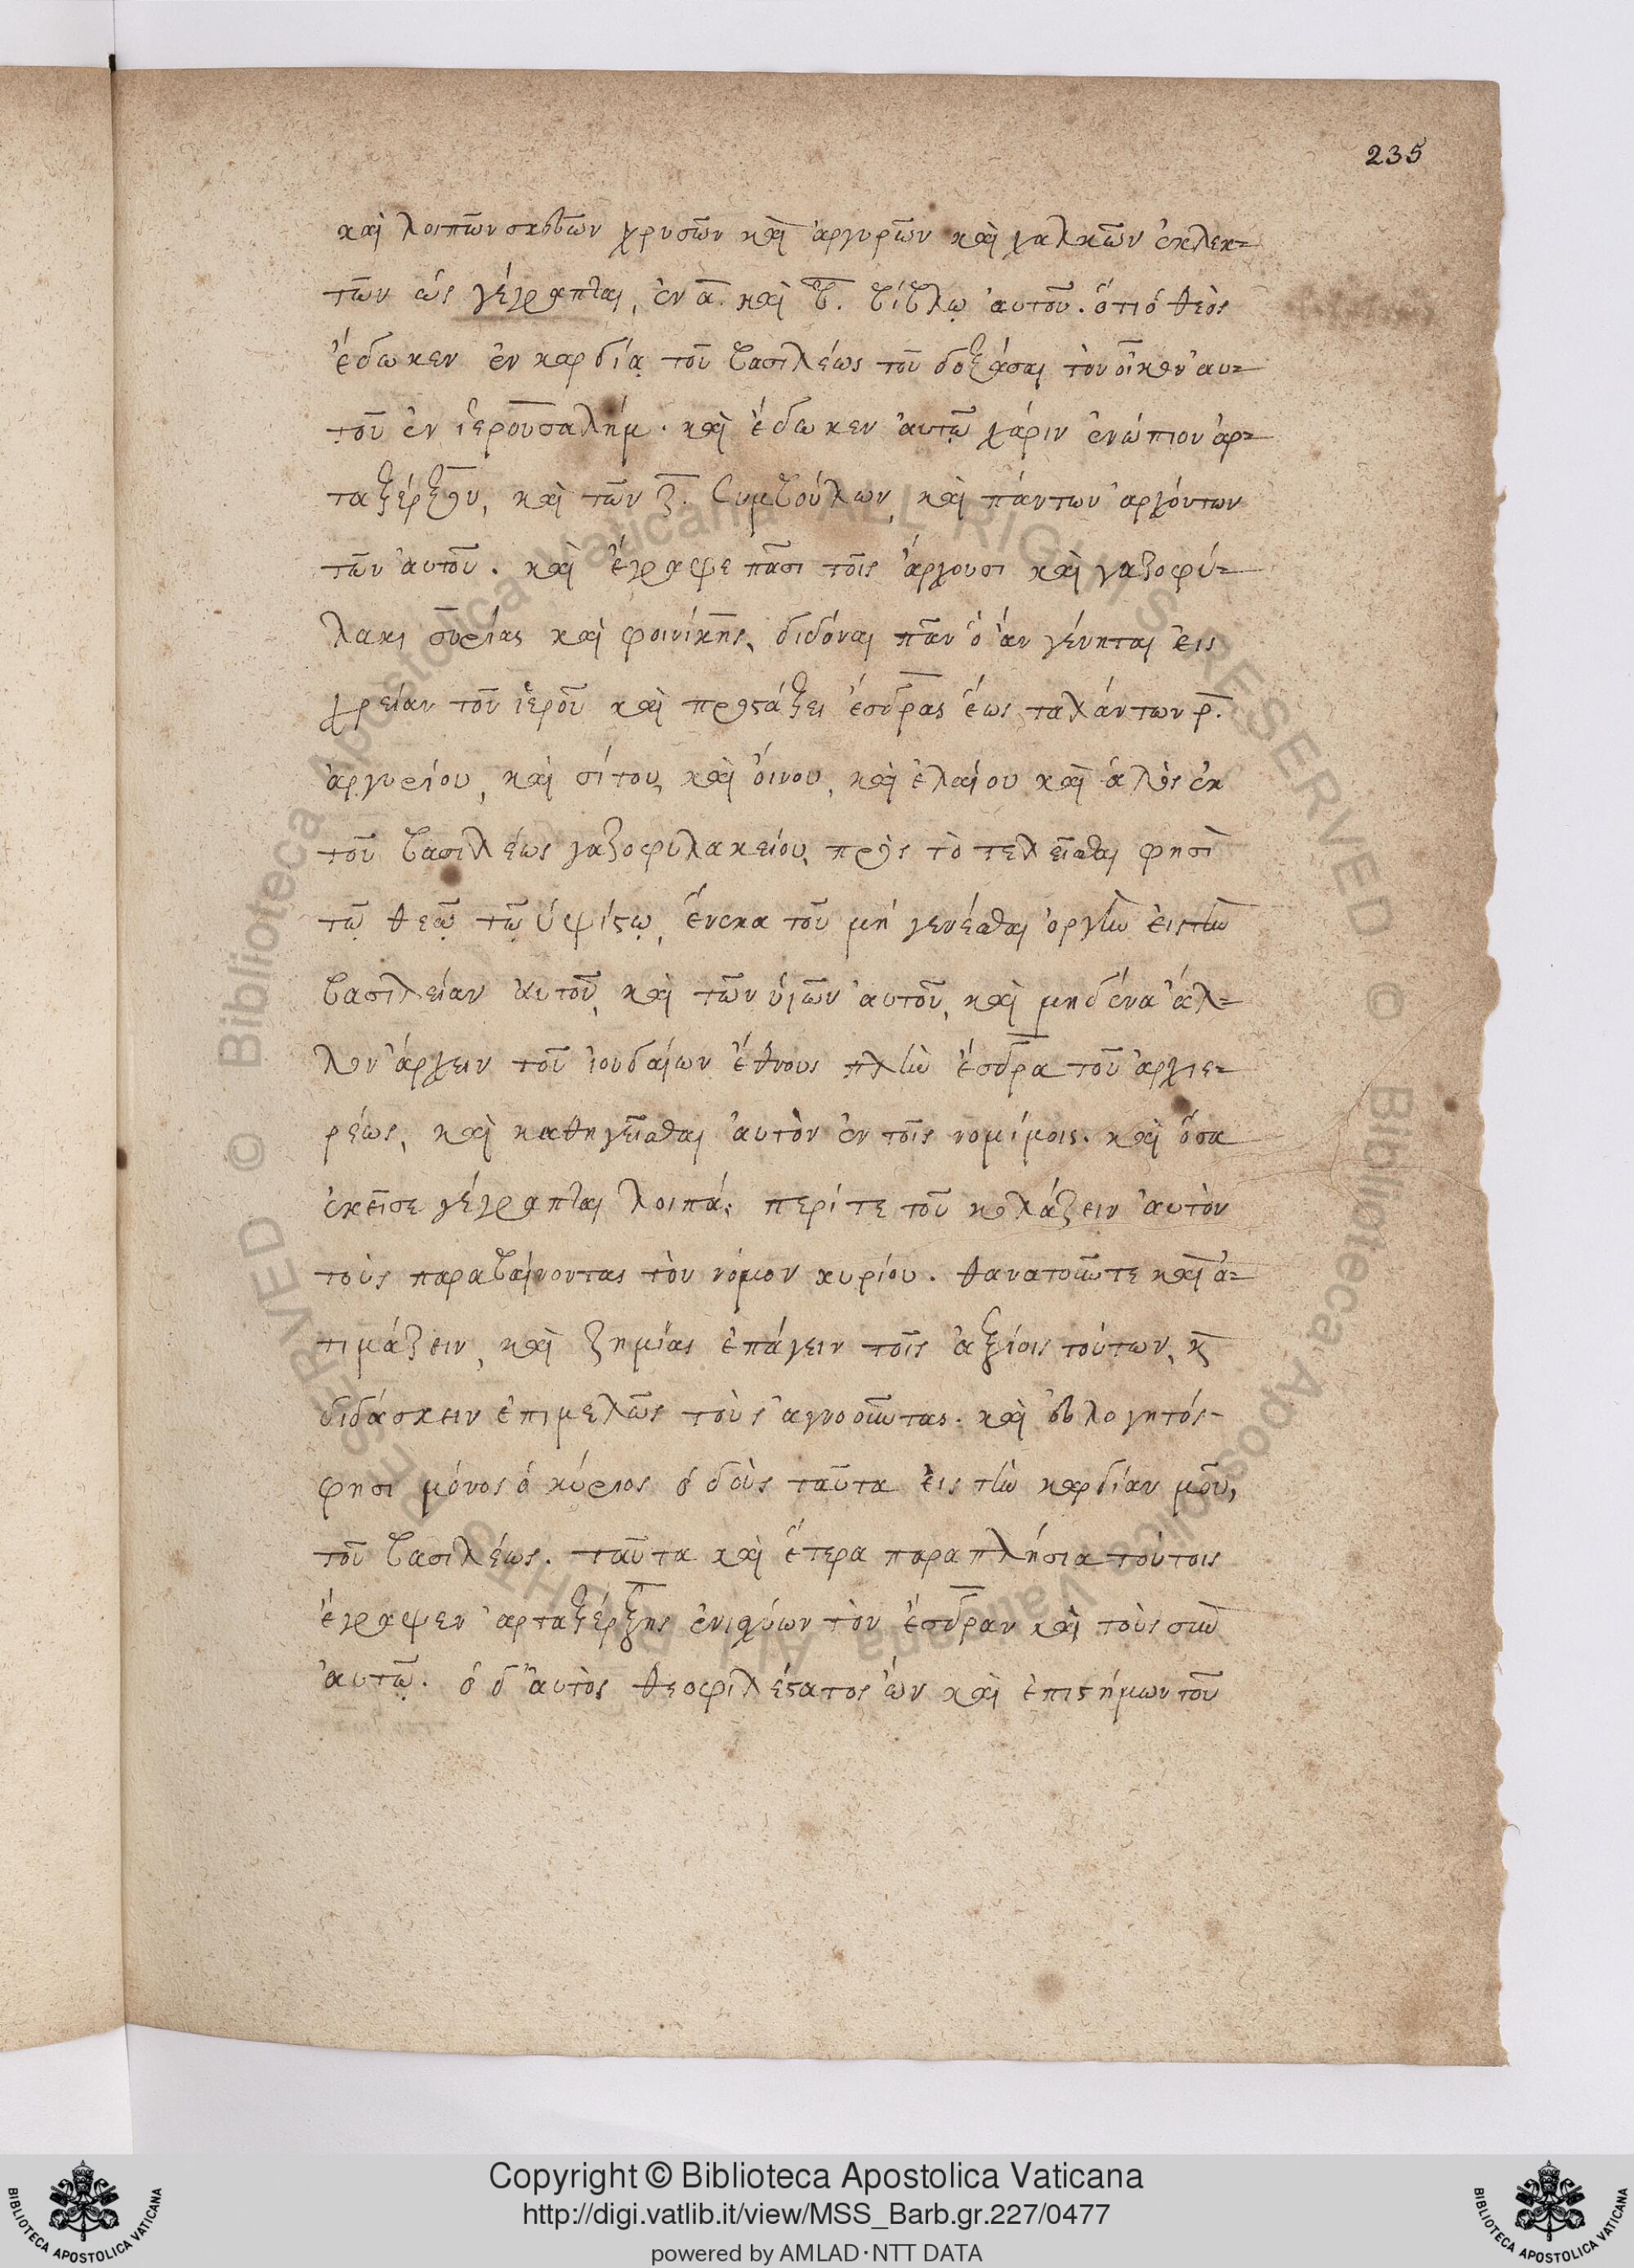 235
καὶ λοιπῶν σκευῶν χρυσῶν καὶ ἀργυρῶν καὶ χαλκῶν ἐκλεκ=
τῶν ὡς γέγραπται, ἐν α. καὶ β. βίβλῳ αὐτοῦ. ὅτι ὁ θεὸς
ἔδωκεν ἐν καρδίᾳ τοῦ βασιλέως τοῦ δοξάσαι τὸν οἶκον αὐ=
τοῦ ἐν ἱερουσαλήμ. καὶ ἔδωκεν αὐτῷ χάριν ἐνώπιον ἀρ=
ταξέρξου, καὶ τῶν ζ. συμβούλων, καὶ πάντων ἀρχόντων
τῶν αὐτοῦ. καὶ ἔγραψε πᾶσι τοῖς ἄρχουσι καὶ γαζοφύ=
λαξι συρίας καὶ φοινίκης, διδόναι πᾶν ὃ ἂν γένηται εἰς
χρείαν τοῦ ἱεροῦ καὶ προστάξει ἔσδρας ἕως ταλάντων ρ.
ἀργυρίου, καὶ σίτου, καὶ οἴνου, καὶ ἐλαίου καὶ ἁλὸς ἐκ
τοῦ βασιλέως γαζοφυλακείου, πρὸς τὸ τελεῖσθαι φησὶ
τῷ θεῷ τῷ ὑψίστῳ, ἕνεκα τοῦ μὴ γενέσθαι ὀργὴν εἰς τὴν
βασιλείαν αὐτοῦ, καὶ τῶν υἱῶν αὐτοῦ, καὶ μηδένα ἄλ=
λον ἄρχειν τοῦ ἰουδαίων ἔθνους πλὴν ἔσδρα τοῦ ἀρχιε=
ρέως, καὶ καθηγεῖσθαι αὐτὸν ἐν τοῖς νομίμοις. καὶ ὅσα
ἐκεῖσε γέγραπται λοιπά, περί τε τοῦ κολάζειν αὐτὸν
τοὺς παραβαίνοντας τὸν νόμον κυρίου. θανατοῦν τε καὶ ἀ=
τιμάζειν, καὶ ζημίας ἐπάγειν τοῖς ἀξίοις τούτων, κ
διδάσκειν ἐπιμελῶς τοὺς ἀγνοοῦντας. καὶ εὐλογητός
φησι μόνος ὁ κύριος ὁ δοὺς ταῦτα εἰς τὴν καρδίαν μου,
τοῦ βασιλέως. ταῦτα καὶ ἕτερα παραπλήσια τούτοις
ἔγραψεν ἀρταξέρξης ἐνισχύων τὸν ἔσδραν καὶ τοὺς σὺν
αὐτῷ. ὁ δ' αὐτὸς θεοφιλέστατος ὢν καὶ ἐπιστήμων τοῦ
Copyright © Biblioteca Apostolica Vaticana
http://digi.vatlib.it/view/MSS_Barb.gr.227/0477
powered by AMLAD·NTT DATA
BIBLIOTECA APOSTOLICA VATICANA
BIBLIOTECA APOSTOLICA VATICANA
© Biblioteca Apostolica Vaticana ALL RIGHTS RESERVED © Biblioteca Apostolica Vaticana ALL RIGHTS RESERVED